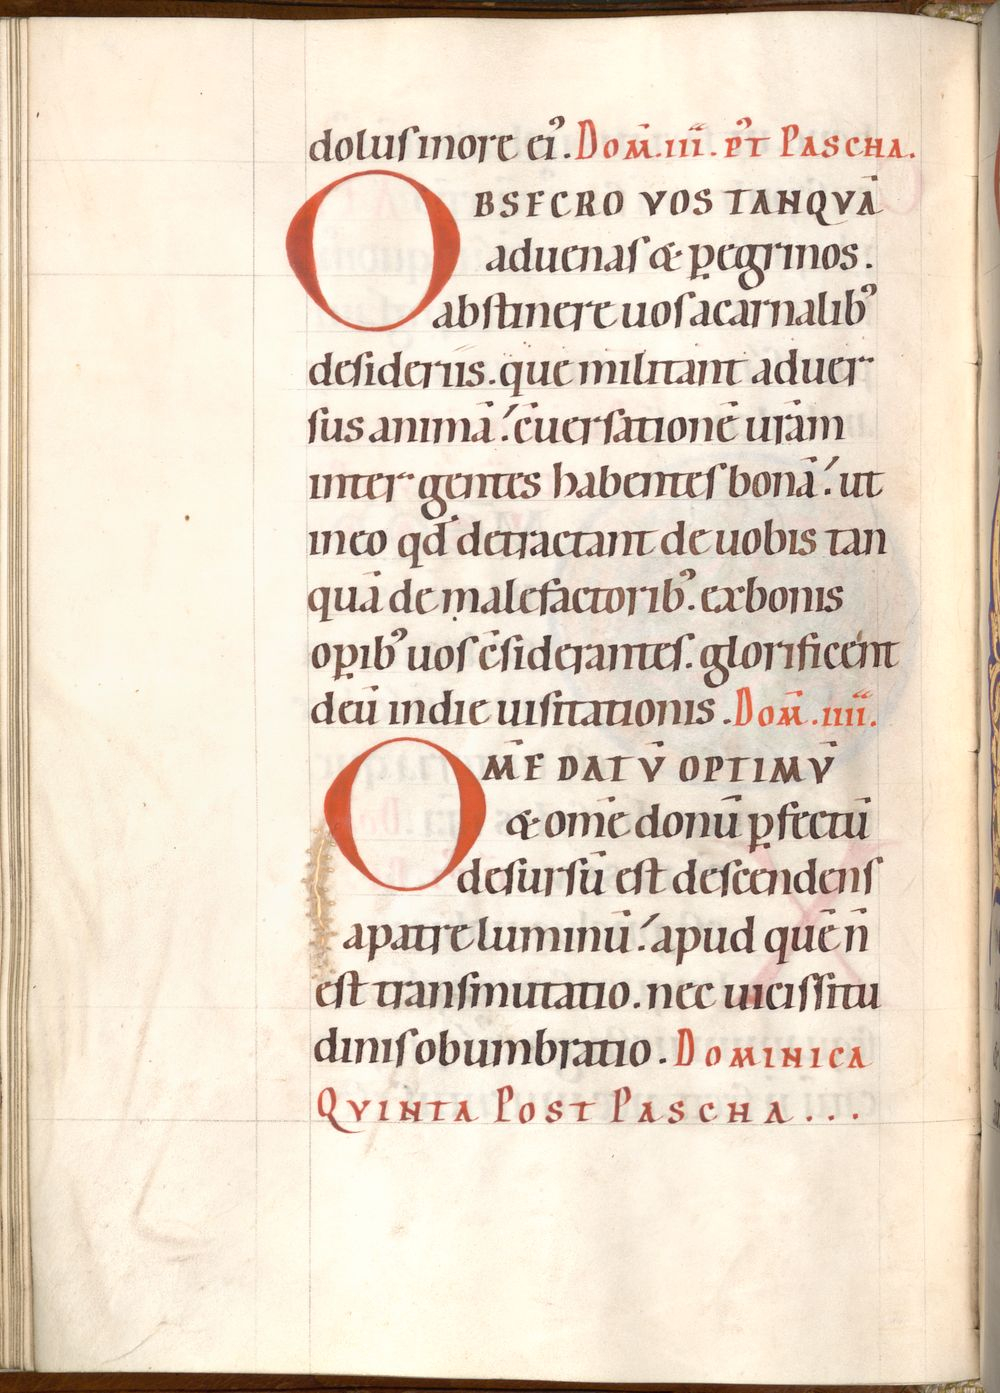 dolus in ore ei᾽. Dom̄. iii. p᾽t Pascha.
OBSECRO VOS TANQVĀ
aduenas & ꝑegrinos.
abstinere uos a carnalib᾽
desideriis. que militant aduer
sus animā. c̄uersationē urām
inter gentes habentes bonā. ut
in eo qd̄ detractant de uobis tan
quā de malefactorib᾽. ex bonis
oꝑib᾽ uos c̄siderantes. glorificent
deū in die uisitationis. Dom̄. iiii.
OM̄E DATV̄ OPTIMV̄
& om̄e donū ꝑfectū
desursū est descendens
a patre luminū. apud quē n̄
est transmutatio. nec uicissitu
dinis obumbratio. Dominica
Qvinta Post Pascha...